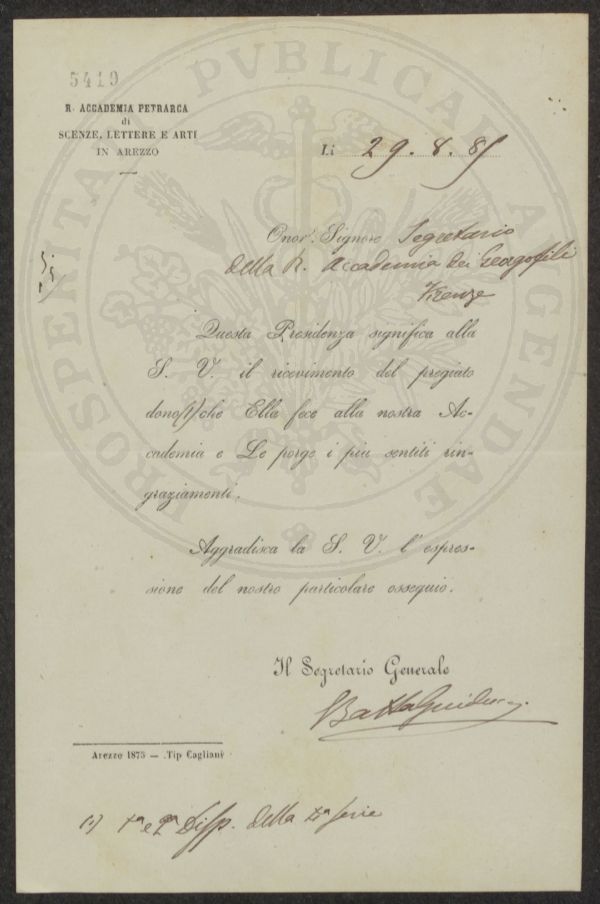 5419
R. ACCADEMIA PETRARCA
di
SCENZE, LETTERE E ARTI
IN AREZZO
Li 29. 8. 85
Onor. Signore Segretario
della R. Accademia dei Georgofili
Firenze
Questa Presidenza significa alla
S. V. il ricevimento del pregiato
dono(1) che Ella fece alla nostra Ac-
cademia e Le porge i più sentiti rin-
graziamenti.
Aggradisca la S. V. l'espres-
sione del nostro particolare ossequio.
Il Segretario Generale
Arezzo 1875 — Tip Cagliani
(1) 1ª e 2ª Disp. della 4ª serie
PROSPERITATI PVBLICAE AVGENDAE